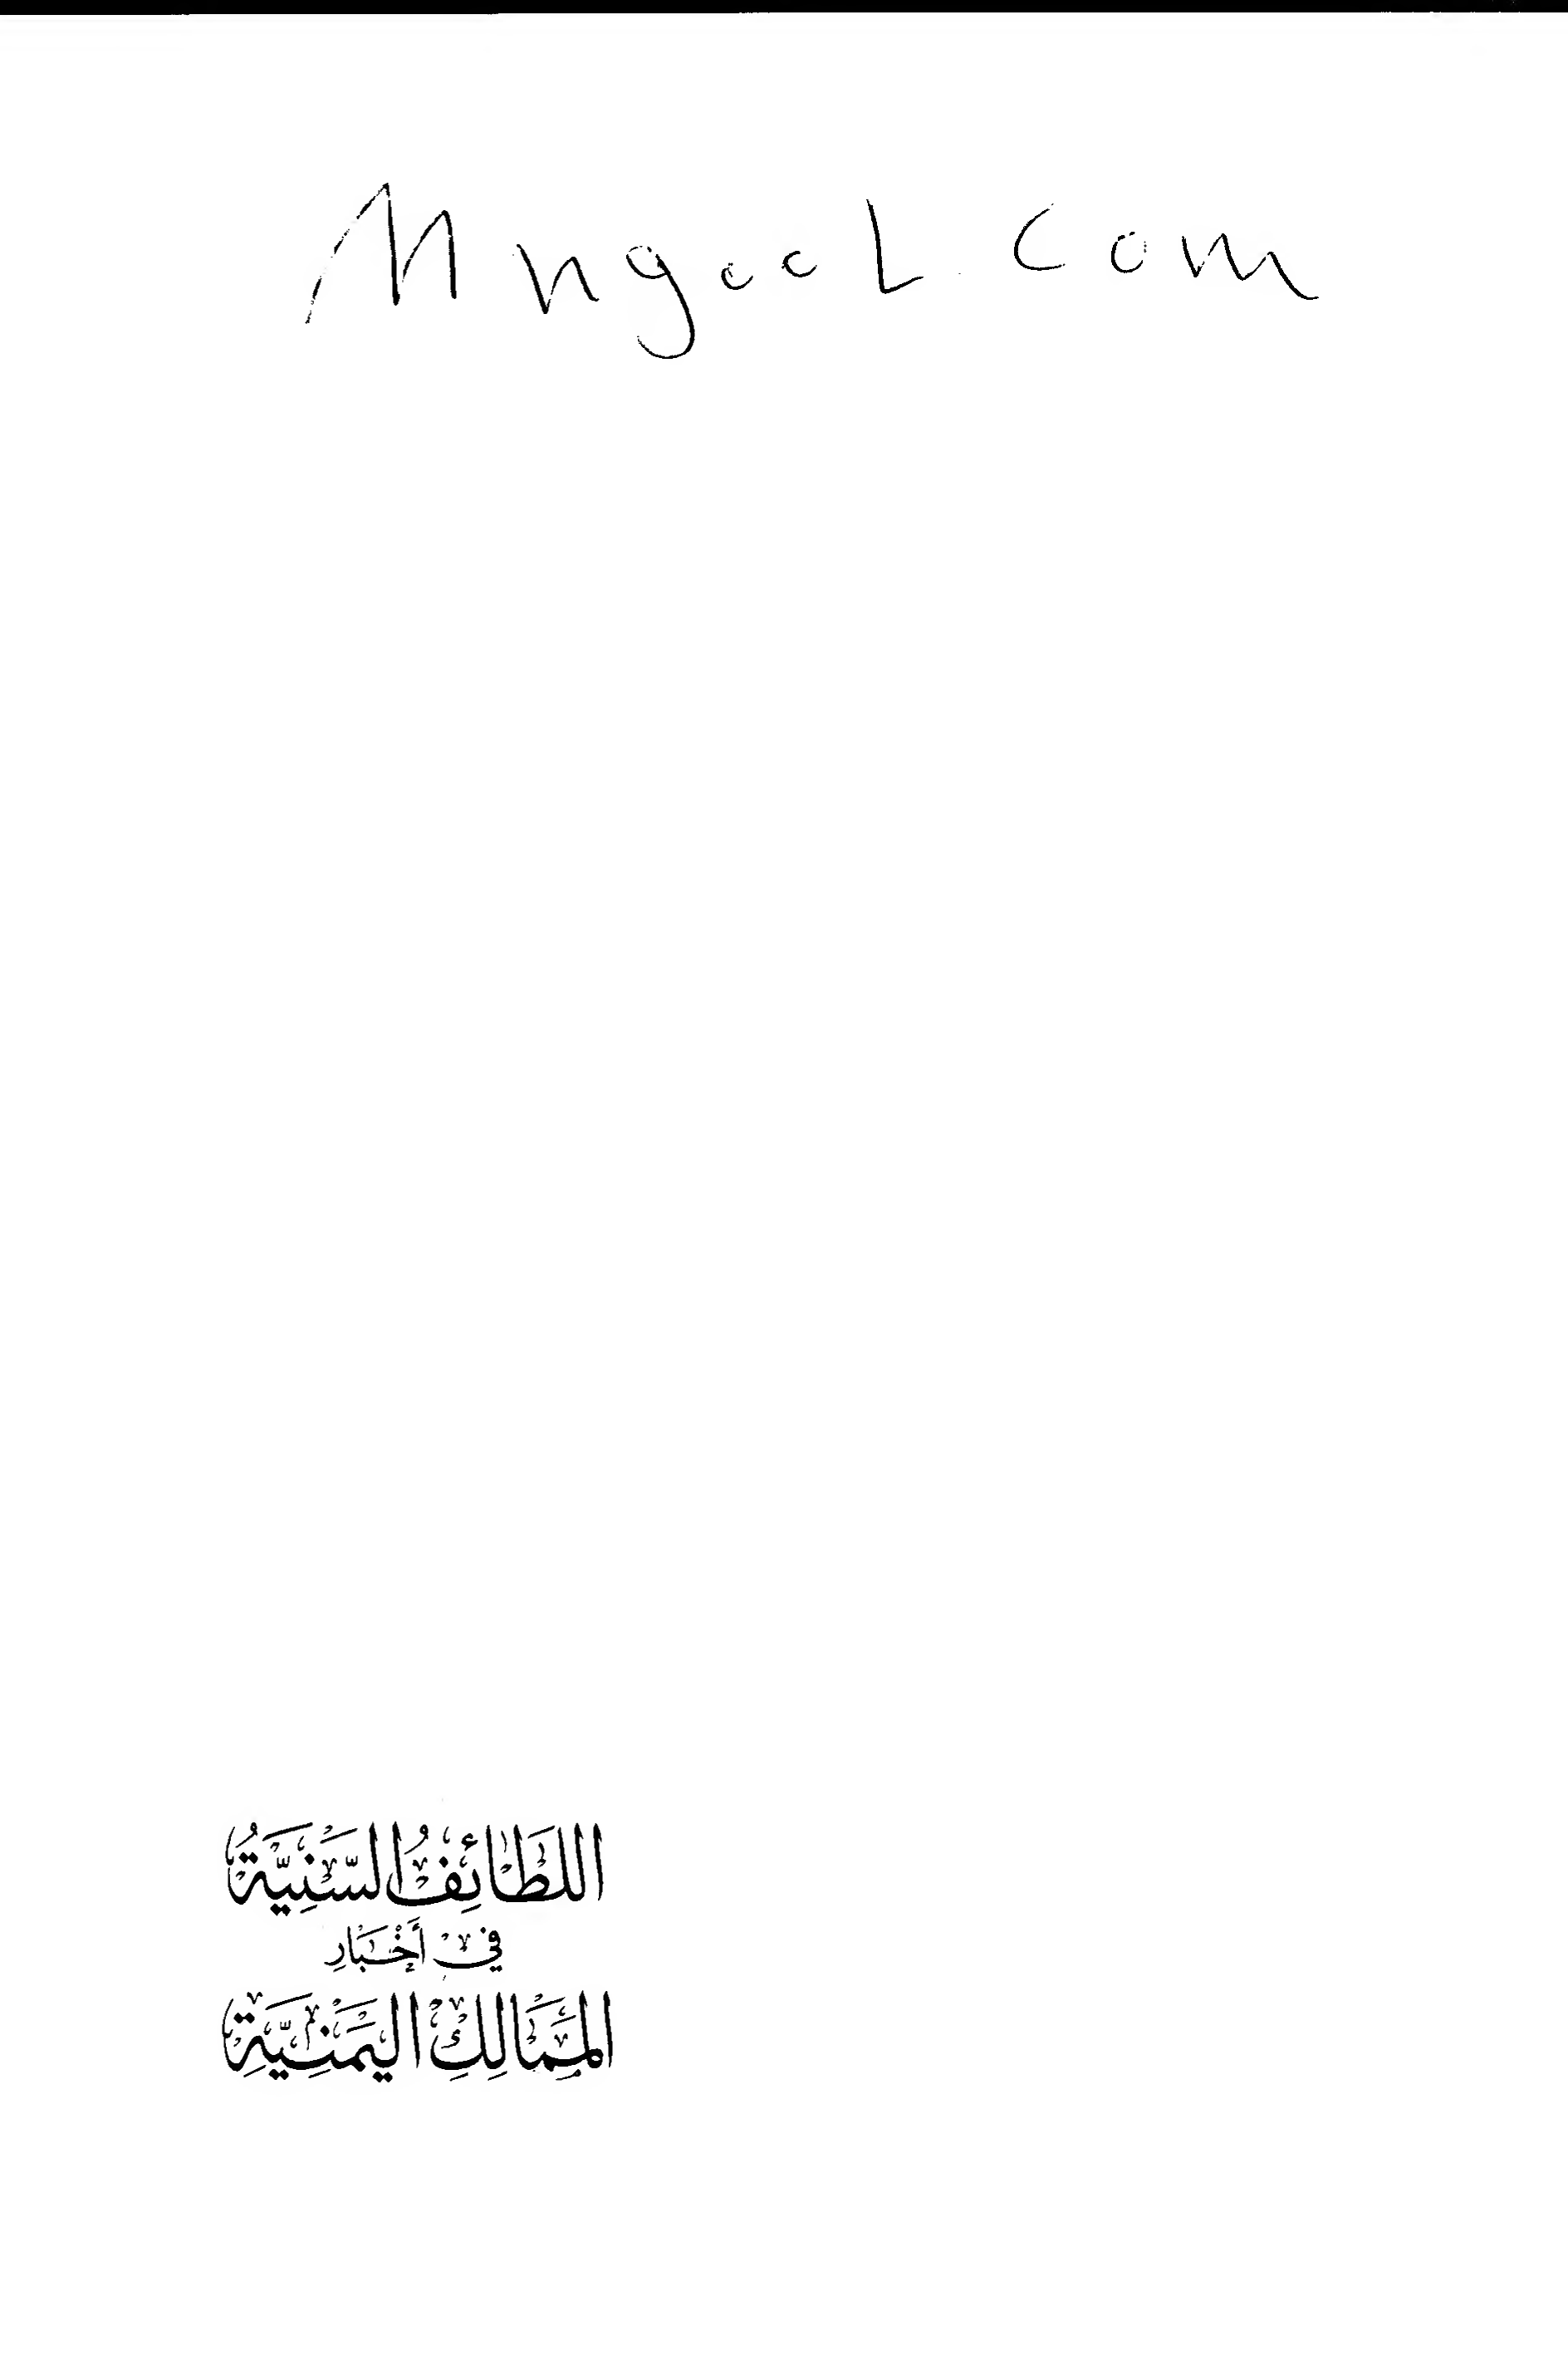 Mngool.com
اللَّطَائِفُ السَّنِيَّةُ
فِي أَخْبَارِ
المَمَالِكِ اليَمَنِيَّةِ